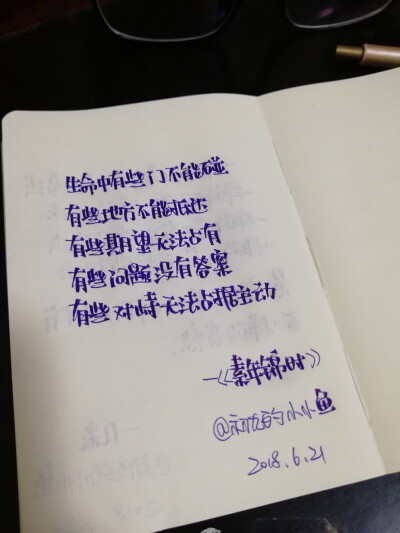 生命中有些门不能碰
有些地方不能抵达
有些期望无法占有
有些问题没有答案
有些对峙无法占据主动
—《素年锦时》
@的小小鱼
2018.6.21